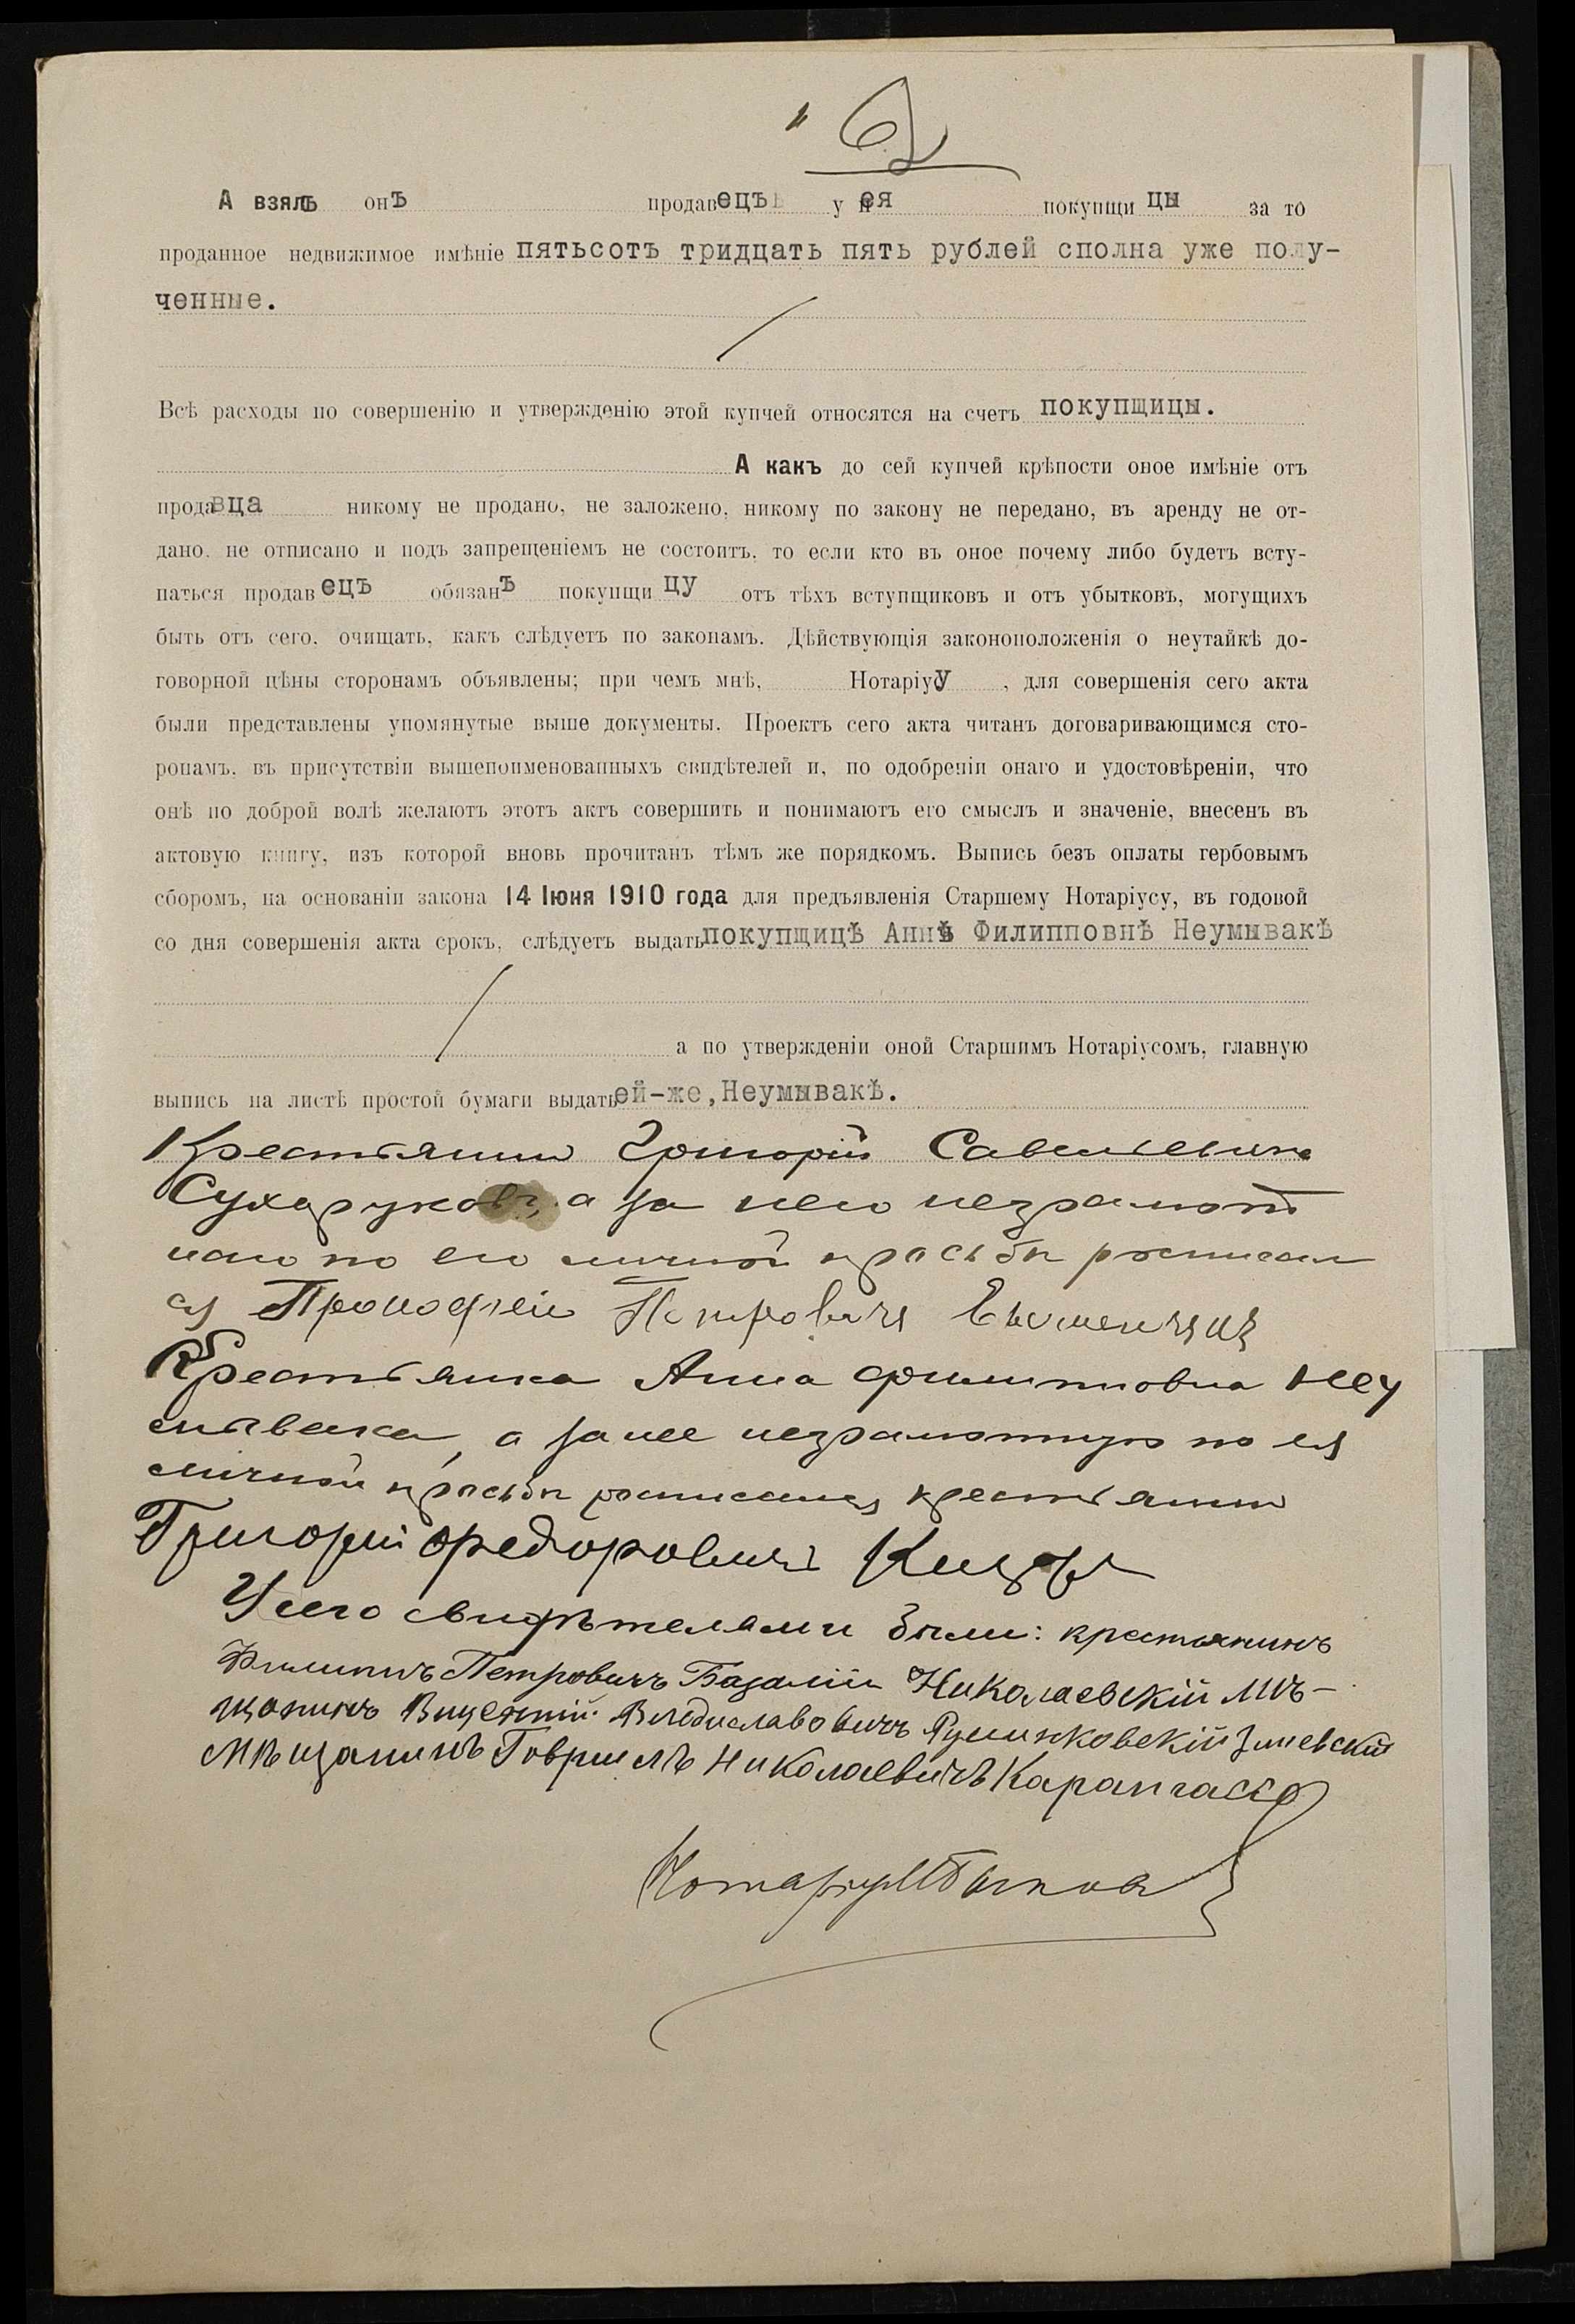 А взялъ онъ продавецъ у нея покупщицы за то
проданное недвижимое имѣніе пятьсотъ тридцать пять рублей сполна уже полу-
ченные.
Всѣ расходы по совершенію и утвержденію этой купчей относятся на счетъ покупщицы.
А какъ до сей купчей крѣпости оное имѣніе отъ
продавца никому не продано, не заложено, никому по закону не передано, въ аренду не от-
дано, не отписано и подъ запрещеніемъ не состоитъ, то если кто въ оное почему либо будетъ всту-
паться продавецъ обязанъ покупщицу отъ тѣхъ вступщиковъ и отъ убытковъ, могущихъ
быть отъ сего, очищать, какъ слѣдуетъ по законамъ. Дѣйствующія законоположенія о неутайкѣ до-
говорной цѣны сторонамъ объявлены; при чемъ мнѣ, Нотаріусу, для совершенія сего акта
были представлены упомянутые выше документы. Проектъ сего акта читанъ договаривающимся сто-
ронамъ, въ присутствіи вышепоименованныхъ свидѣтелей и, по одобреніи онаго и удостовѣреніи, что
онѣ по доброй волѣ желаютъ этотъ актъ совершить и понимаютъ его смыслъ и значеніе, внесенъ въ
актовую книгу, изъ которой вновь прочитанъ тѣмъ же порядкомъ. Выпись безъ оплаты гербовымъ
сборомъ, на основаніи закона 14 Іюня 1910 года для предъявленія Старшему Нотаріусу, въ годовой
со дня совершенія акта срокъ, слѣдуетъ выдать покупщицѣ Аннѣ Филипповнѣ Неумывакѣ
а по утвержденіи оной Старшимъ Нотаріусомъ, главную
выпись на листѣ простой бумаги выдать ей-же, Неумывакѣ.
Крестьянин Григорій Савельевичъ
Сухоруковъ, а за него неграмот
наго по его личной просьбѣ росписал
ся Прокофей Петровичъ
Крестьянка Анна Филиповна Неу
мывака, а за нее неграмотную по ея
личной просьбѣ росписался крестьянин
Григорий Федоровичъ
У сего свидѣтелями были: крестьянинъ
Филиппъ Петровичъ Багалій Николаевскій мѣ-
щанинъ Викентій Владиславовичъ Зміевскій
мѣщанинъ Гавріилъ Николаевичъ
Нотаріусъ